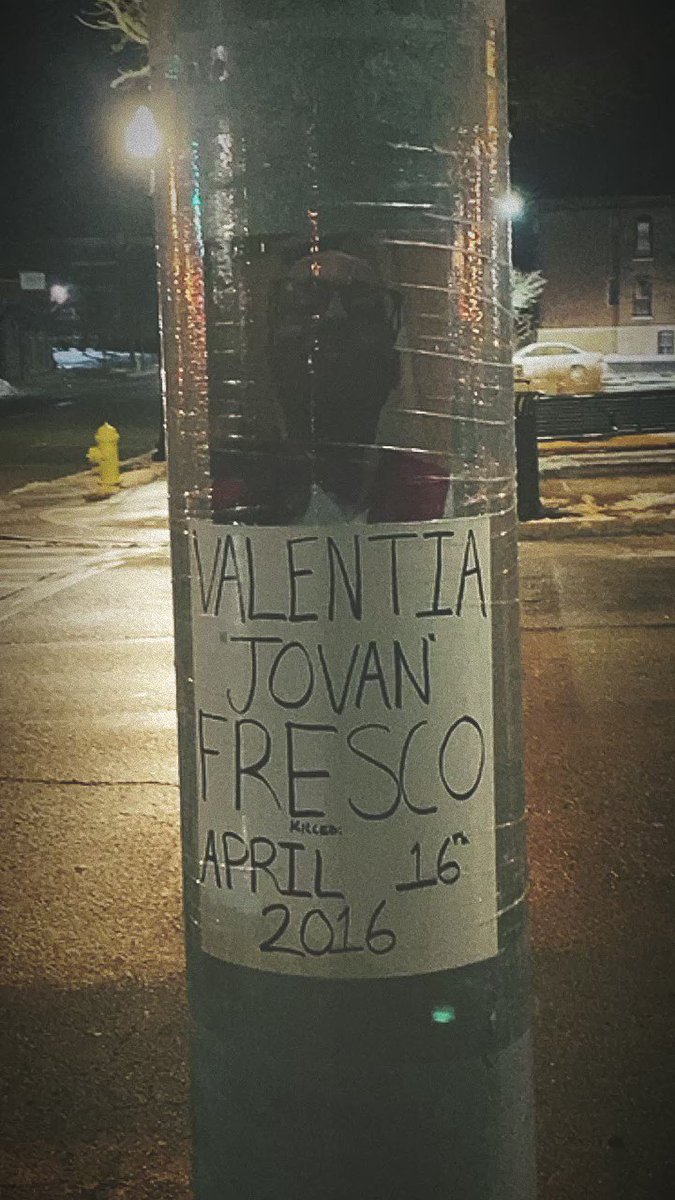 VALENTIA
"JOVAN"
FRESCO
KILLED:
APRIL 16TH
2016